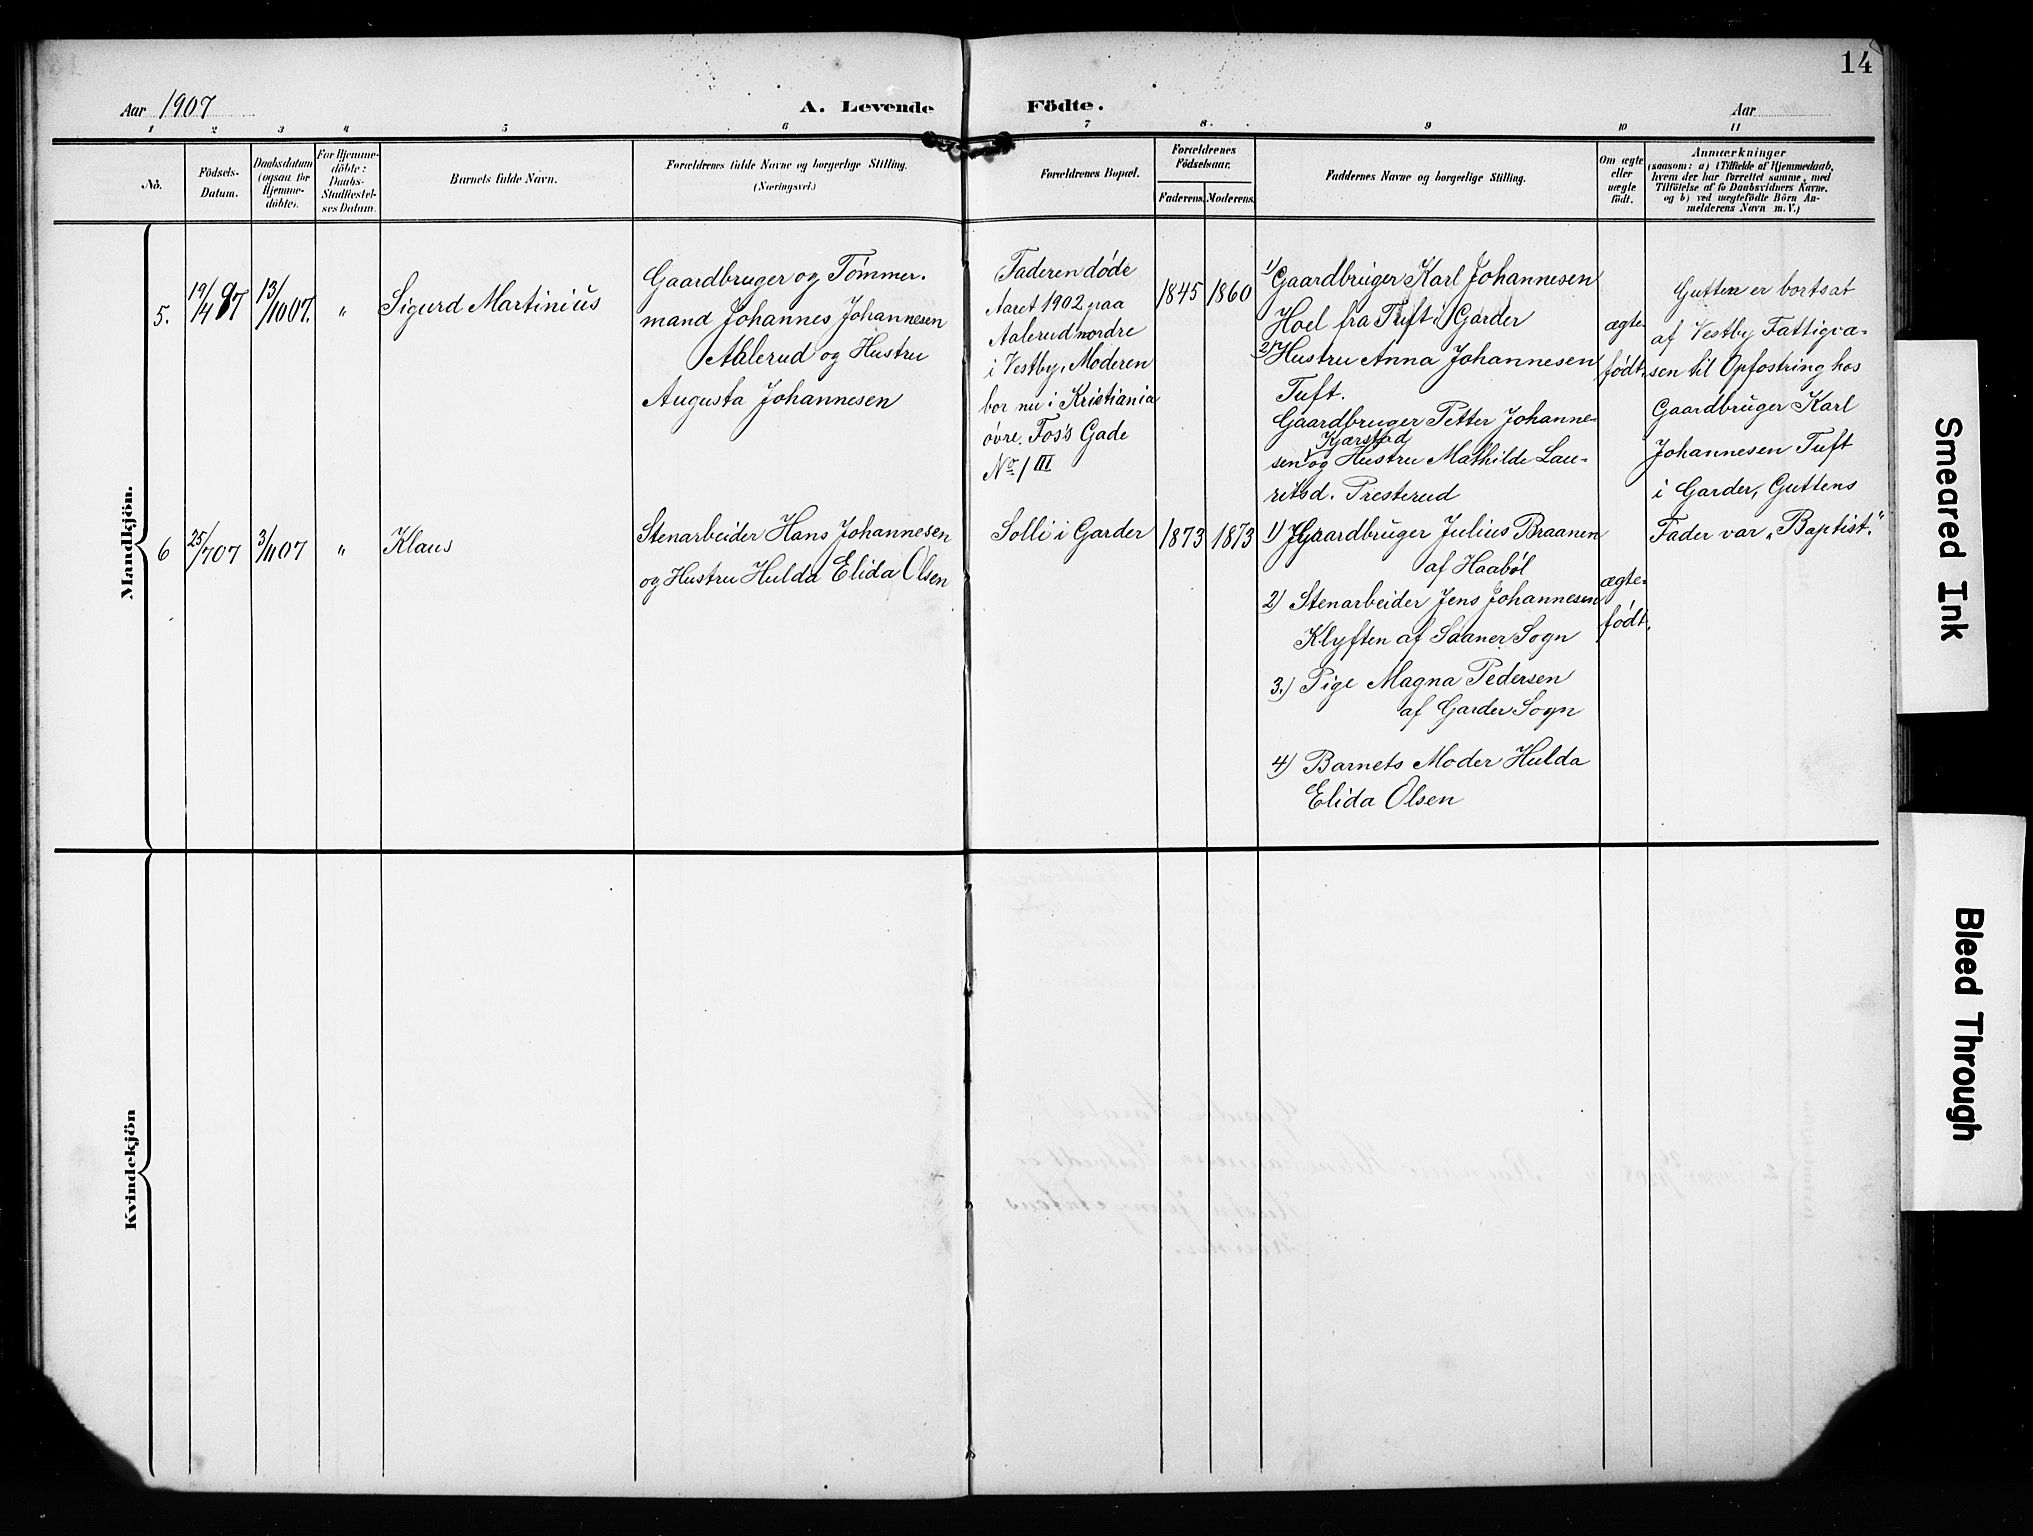 14
Aar 1907
A. Levende Födte.
Aar
1 2 3 4 5 6 7 8. 9 10 11
No.
Födsels-
Datum.
Daabsdatum
(ogsaa for
Hjemme-
döbte).
For Hjemme-
döbte:
Daabs-
Stadfestel-
ses Datum.
Barnets fulde Navn.
Forældrenes fulde Navne og borgerlige Stilling.
(Næringsvei.)
Forældrenes Bopæl.
Forældrenes
Födselsaar.
Faderens. Moderens.
Faddernes Navne og borgerlige Stilling.
Om ægte
eller
uægte
födt.
Anmærkninger
(saasom: a) i Tilfælde af Hjemmedaab,
hvem der har forrettet samme, med
Tilföielse af to Daabsvidners Navne,
og b) ved uægtefödte Börn An-
melderens Navn m. V.)
Mandkjön.
5.
19/4 97
13/10 07.
"
Sigurd Martinius
Gaardbruger og Tømmer.
mand Johannes Johannesen
Aalerud og Hustru
Augusta Johannesen
Faderen døde
Aaret 1902 paa
Aalerud nordre
i Vestby, Moderen
bor nu i Kristiania
øvre. Foss Gade
No 1 III
1845
1860
1) Gaardbruger Karl Johannesen
Hoel fra Tuft i Garder
2) Hustru Anna Johannesen
Tuft.
Gaardbruger Petter Johanne-
Kjærstad
sen og Hustru Mathilde Lau-
ritsd. Presterud
ægte-
født.
Gutten er bortsat
af Vestby Fattigvæ-
sen til Opfostring hos
Gaardbruger Karl
Johannesen Tuft
i Garder, Guttens
Fader var „Baptist."
6
25/7 07
3/11 07
"
Klaus
Stenarbeider Hans Johannesen
og Hustru Hulda Elida Olsen
Solli i Garder
1873
1873
1) Gaardbruger Julius Braanen
af Haabøl
2) Stenarbeider Jens Johannesen
Klyften af Saaner Sogn
3.) Pige Magna Pedersen
af Garder Sogn
4) Barnets Moder Hulda
Elida Olsen
ægte-
født.
Kvindekjön
Smeared Ink
Bleed Through